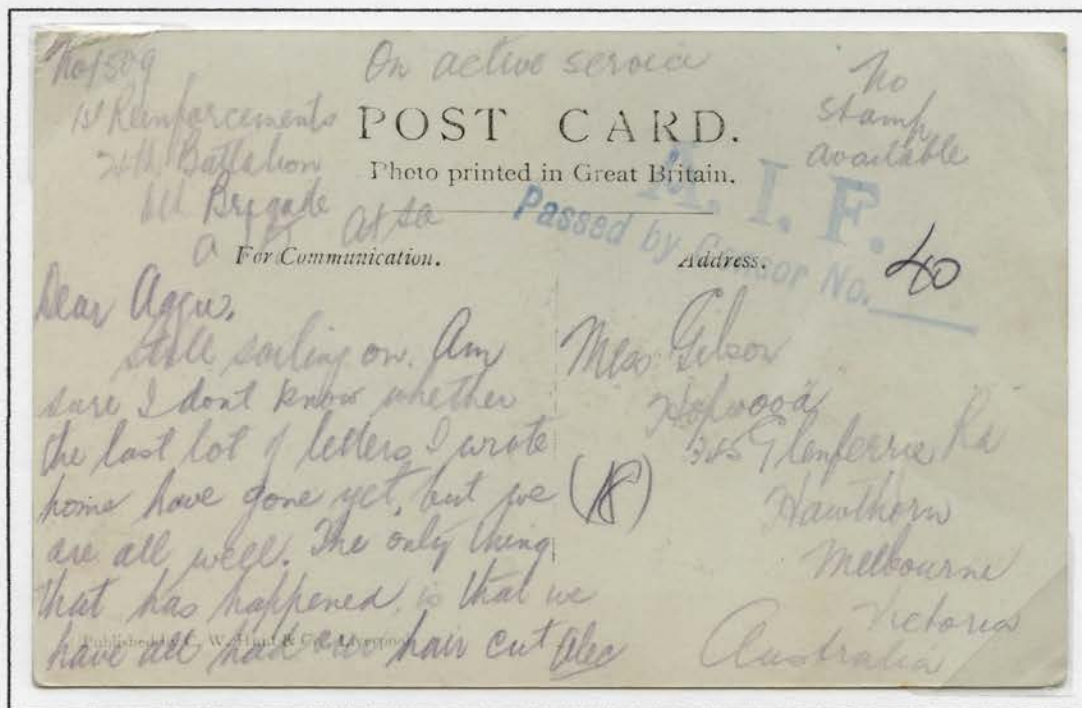 No 1509
1st Reinforcements
24th Battalion
6th Brigade
At Sea
On active service
No
stamp
available
POST CARD.
Photo printed in Great Britain.
A. I. F.
Passed by Censor No.
40
For Communication.
Address.
Dear Aggie,
Still sailing on. Am
sure I dont know whether
the last lot of letters I wrote
home have gone yet, but we
are all well. The only thing
that has happened is that we
have all had hair cut Alec
Published by C. W. Hunt & Co., Liverpool
Miss Gibson
"Hopwood"
345 Glenferrie Rd
Hawthorn
Melbourne
Victoria
Australia
(18)